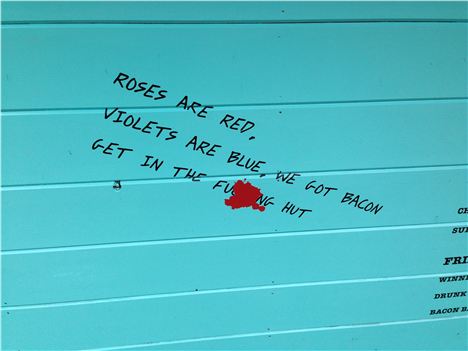 ROSES ARE RED,
VIOLETS ARE BLUE, WE GOT BACON
GET IN THE FU NG HUT
FRI
WINN
DRUNK
BACON BA